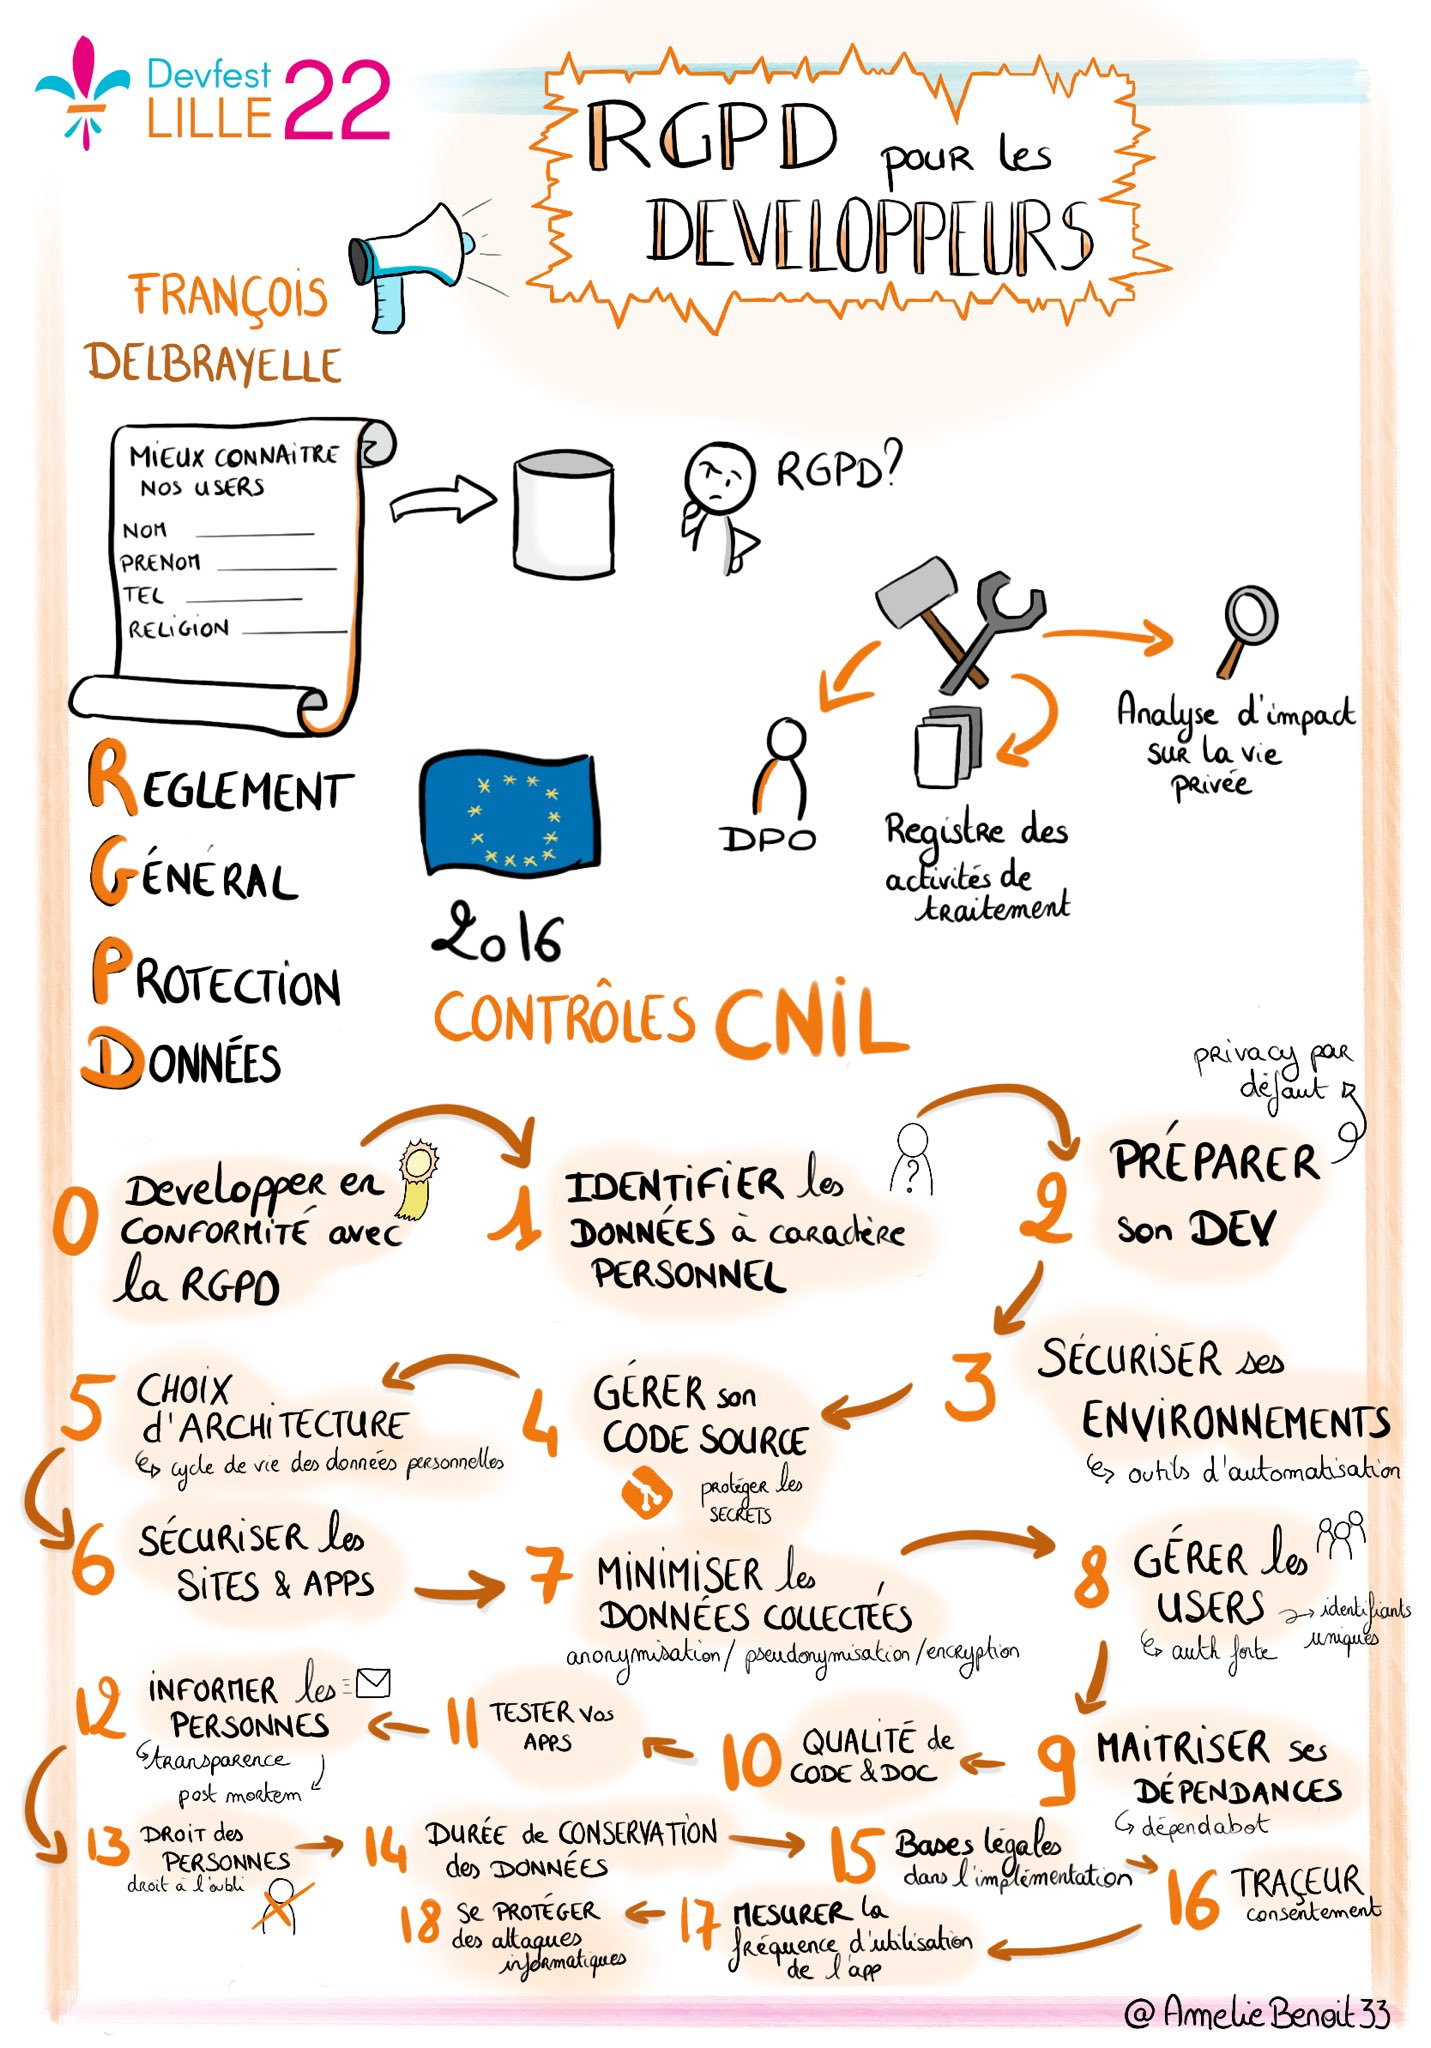 Devfest
LILLE 22
RGPD pour les
DEVELOPPEURS
FRANÇOIS
DELBRAYELLE
MIEUX CONNAITRE
NOS USERS
NOM
PRENOM
TEL
RELIGION
RGPD?
Analyse d'impact
sur la vie
privée
DPO
Registre des
activités de
traitement
REGLEMENT
GÉNÉRAL
PROTECTION
DONNÉES
2016
CONTRÔLES CNIL
privacy par
défaut
0 Développer en
CONFORMITÉ avec
la RGPD
1 IDENTIFIER les
DONNÉES à caractère
PERSONNEL
?
2 PRÉPARER
son DEV
3 SÉCURISER ses
ENVIRONNEMENTS
outils d'automatisation
4 GÉRER son
CODE SOURCE
protéger les
SECRETS
5 CHOIX
d'ARCHITECTURE
cycle de vie des données personnelles
6 SÉCURISER les
SITES & APPS
7 MINIMISER les
DONNÉES COLLECTÉES
anonymisation / pseudonymisation / encryption
8 GÉRER les
USERS
identifiants
uniques
auth forte
9 MAITRISER ses
DÉPENDANCES
dépendabot
10 QUALITÉ de
CODE & DOC
11 TESTER vos
APPS
12 INFORMER les
PERSONNES
transparence
post mortem
13 DROIT des
PERSONNES
droit à l'oubli
14 DURÉE de CONSERVATION
des DONNÉES
15 Bases légales
dans l'implémentation
16 TRAÇEUR
consentement
17 MESURER la
fréquence d'utilisation
de l'app
18 Se PROTÉGER
des attaques
informatiques
@AmelieBenoit33